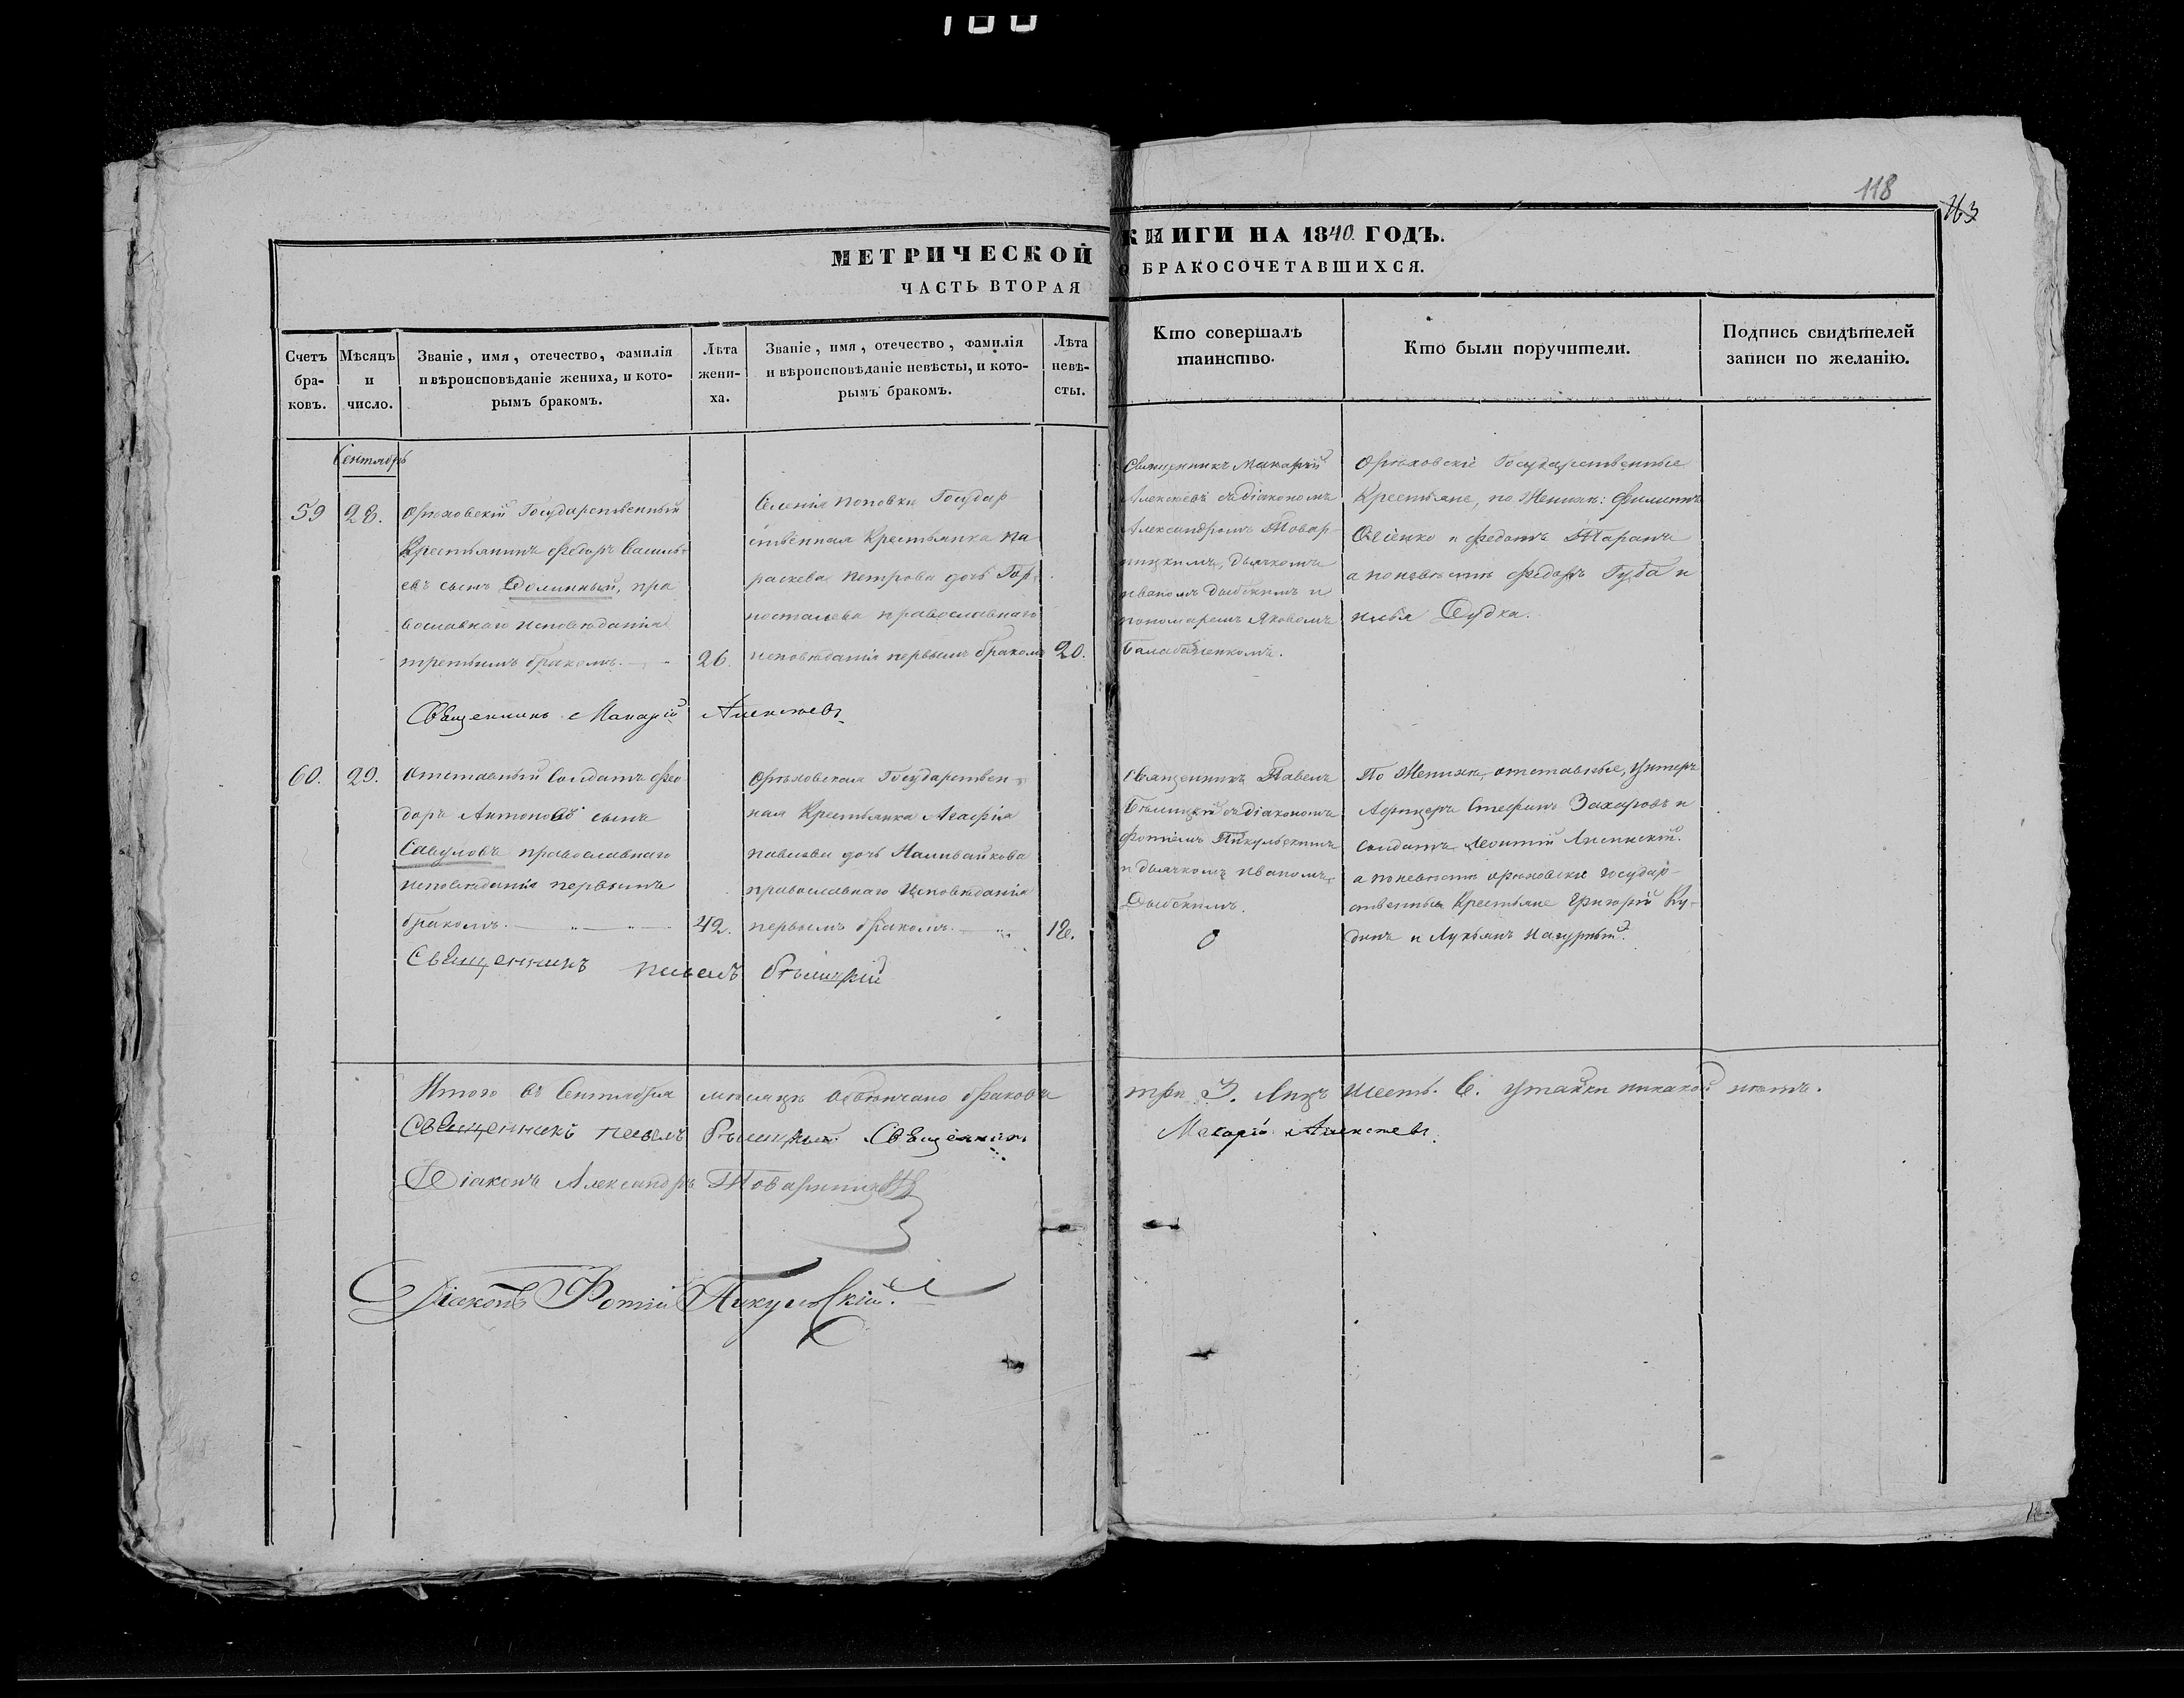 118
МЕТРИЧЕСКОЙ КНИГИ НА 1840. ГОДЪ.
ЧАСТЬ ВТОРАЯ О БРАКОСОЧЕТАВШИХСЯ.
Счетъ
бра-
ковъ.
Мѣсяцъ
и
число.
Званіе, имя, отечество, фамилія
и вѣроисповѣданіе жениха, и кото-
рымъ бракомъ.
Лѣта
жени-
ха.
Званіе, имя, отечество, фамилія
и вѣроисповѣданіе невѣсты, и кото-
рымъ бракомъ.
Лѣта
невѣ-
сты.
Кто совершалъ
таинство.
Кто были поручители.
Подпись свидѣтелей
записи по желанію.
Сентябрь
59
28.
Орѣховскій Государственный
Крестьянинъ Федоръ Василь-
евъ сынъ Долинный, пра
вославнаго исповѣданія
третьимъ бракомъ.
26.
Селенія Поповки Государ
ственная Крестьянка Па
раскева Петрова дочь Гор-
носталева православнаго
исповѣданія первымъ бракомъ
20.
Священникъ Макарій
Алексѣевъ съ діакономъ
Александромъ Товар-
ницкимъ, дьячкомъ
Иваномъ Дыбскимъ и
пономаремъ Яковомъ
Балабаненкомъ.
Орѣховскіе Государственные
Крестьяне, по Женихѣ: Филиппъ
Овсіенко и Федотъ Таранъ
а по невѣстѣ Федоръ Губа и
Илья Дудка.
Священникъ Макарій Алексѣевъ
60.
29.
Отставный Солдатъ Фео
доръ Антоновъ сынъ
Савуловъ православнаго
исповѣданія первымъ
бракомъ.
42.
Орѣховская Государствен-
ная Крестьянка Агафія
Павлова дочь Наливайкова
православнаго исповѣданія
первымъ бракомъ.
18.
Священникъ Павелъ
Бѣлицкій съ діакономъ
Фотіемъ Пикульскимъ
и дьячкомъ Иваномъ
Дыбскимъ.
По Женихѣ, отставные, Унтеръ
Афицеръ Стефанъ Захаровъ и
солдатъ Леонтій Лисинскій.
а по невѣстѣ орѣховски государ-
ственные Крестьяне Григорій Ку-
динъ и Лукьянъ Нагурный.
Священникъ Павелъ Бѣлицкій
Итого въ Сентябрѣ мѣсяцѣ обвѣнчано браковъ три 3. Лицъ шесть. 6. утайки никакой нѣтъ.
Священникъ Павелъ Бѣлицкій Священникъ Макарій Алексѣевъ
Діаконъ Александръ Товарницкій
Діаконъ Фотій Пикульскій.